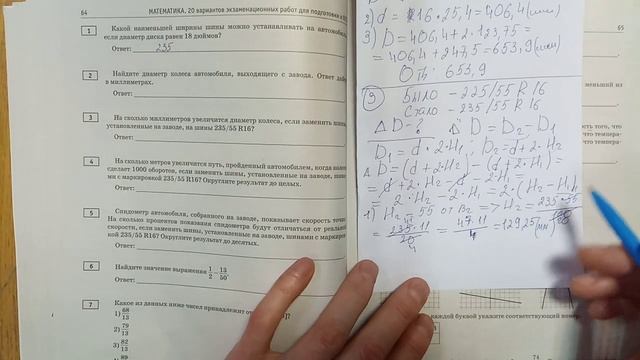 64
МАТЕМАТИКА, 20 вариантов экзаменационных работ для подготовки к
1
Какой наименьшей ширины шины можно устанавливать на автомобиль,
если диаметр диска равен 18 дюймов?
Ответ: 235
2
Найдите диаметр колеса автомобиля, выходящего с завода. Ответ дайте
в миллиметрах.
Ответ:
3
На сколько миллиметров увеличится диаметр колеса, если заменить шины,
установленные на заводе, на шины 235/55 R16?
Ответ:
4
На сколько метров увеличится путь, пройденный автомобилем, когда колесо
сделает 1000 оборотов, если заменить шины, установленные на заводе, шинами
с маркировкой 235/55 R16? Округлите результат до целых.
Ответ:
5
Спидометр автомобиля, собранного на заводе, показывает скорость точно.
На сколько процентов показания спидометра будут отличаться от реальной
скорости, если заменить шины, установленные на заводе, шинами с маркировкой
235/55 R16? Округлите результат до десятых.
Ответ:
6
Найдите значение выражения 1/2 − 13/50.
Ответ:
7
Какое из данных ниже чисел принадлежит
1) 68/13
2) 79/13
3) 82/13
89
2) d = 16 · 25,4 = 406,4 (мм)
3) D = 406,4 + 2 · 123,75 =
= 406,4 + 247,5 = 653,9 (мм)
От: 653,9
Было – 225/55 R 16
Стало – 235/55 R 16
Δ D – ? Δ D = D₂ – D₁
D₁ = d + 2·H₁; D₂ = d + 2·H₂
Δ D = (d + 2·H₂) – (d + 2·H₁) =
= d + 2·H₂ – d – 2·H₁ =
= 2·H₂ – 2·H₁ = 2·(H₂ – H₁)
= 235·11/20 = 47·11/4 = 129,25 (мм)
65
каждой буквой укажите соответствующий номер.
74